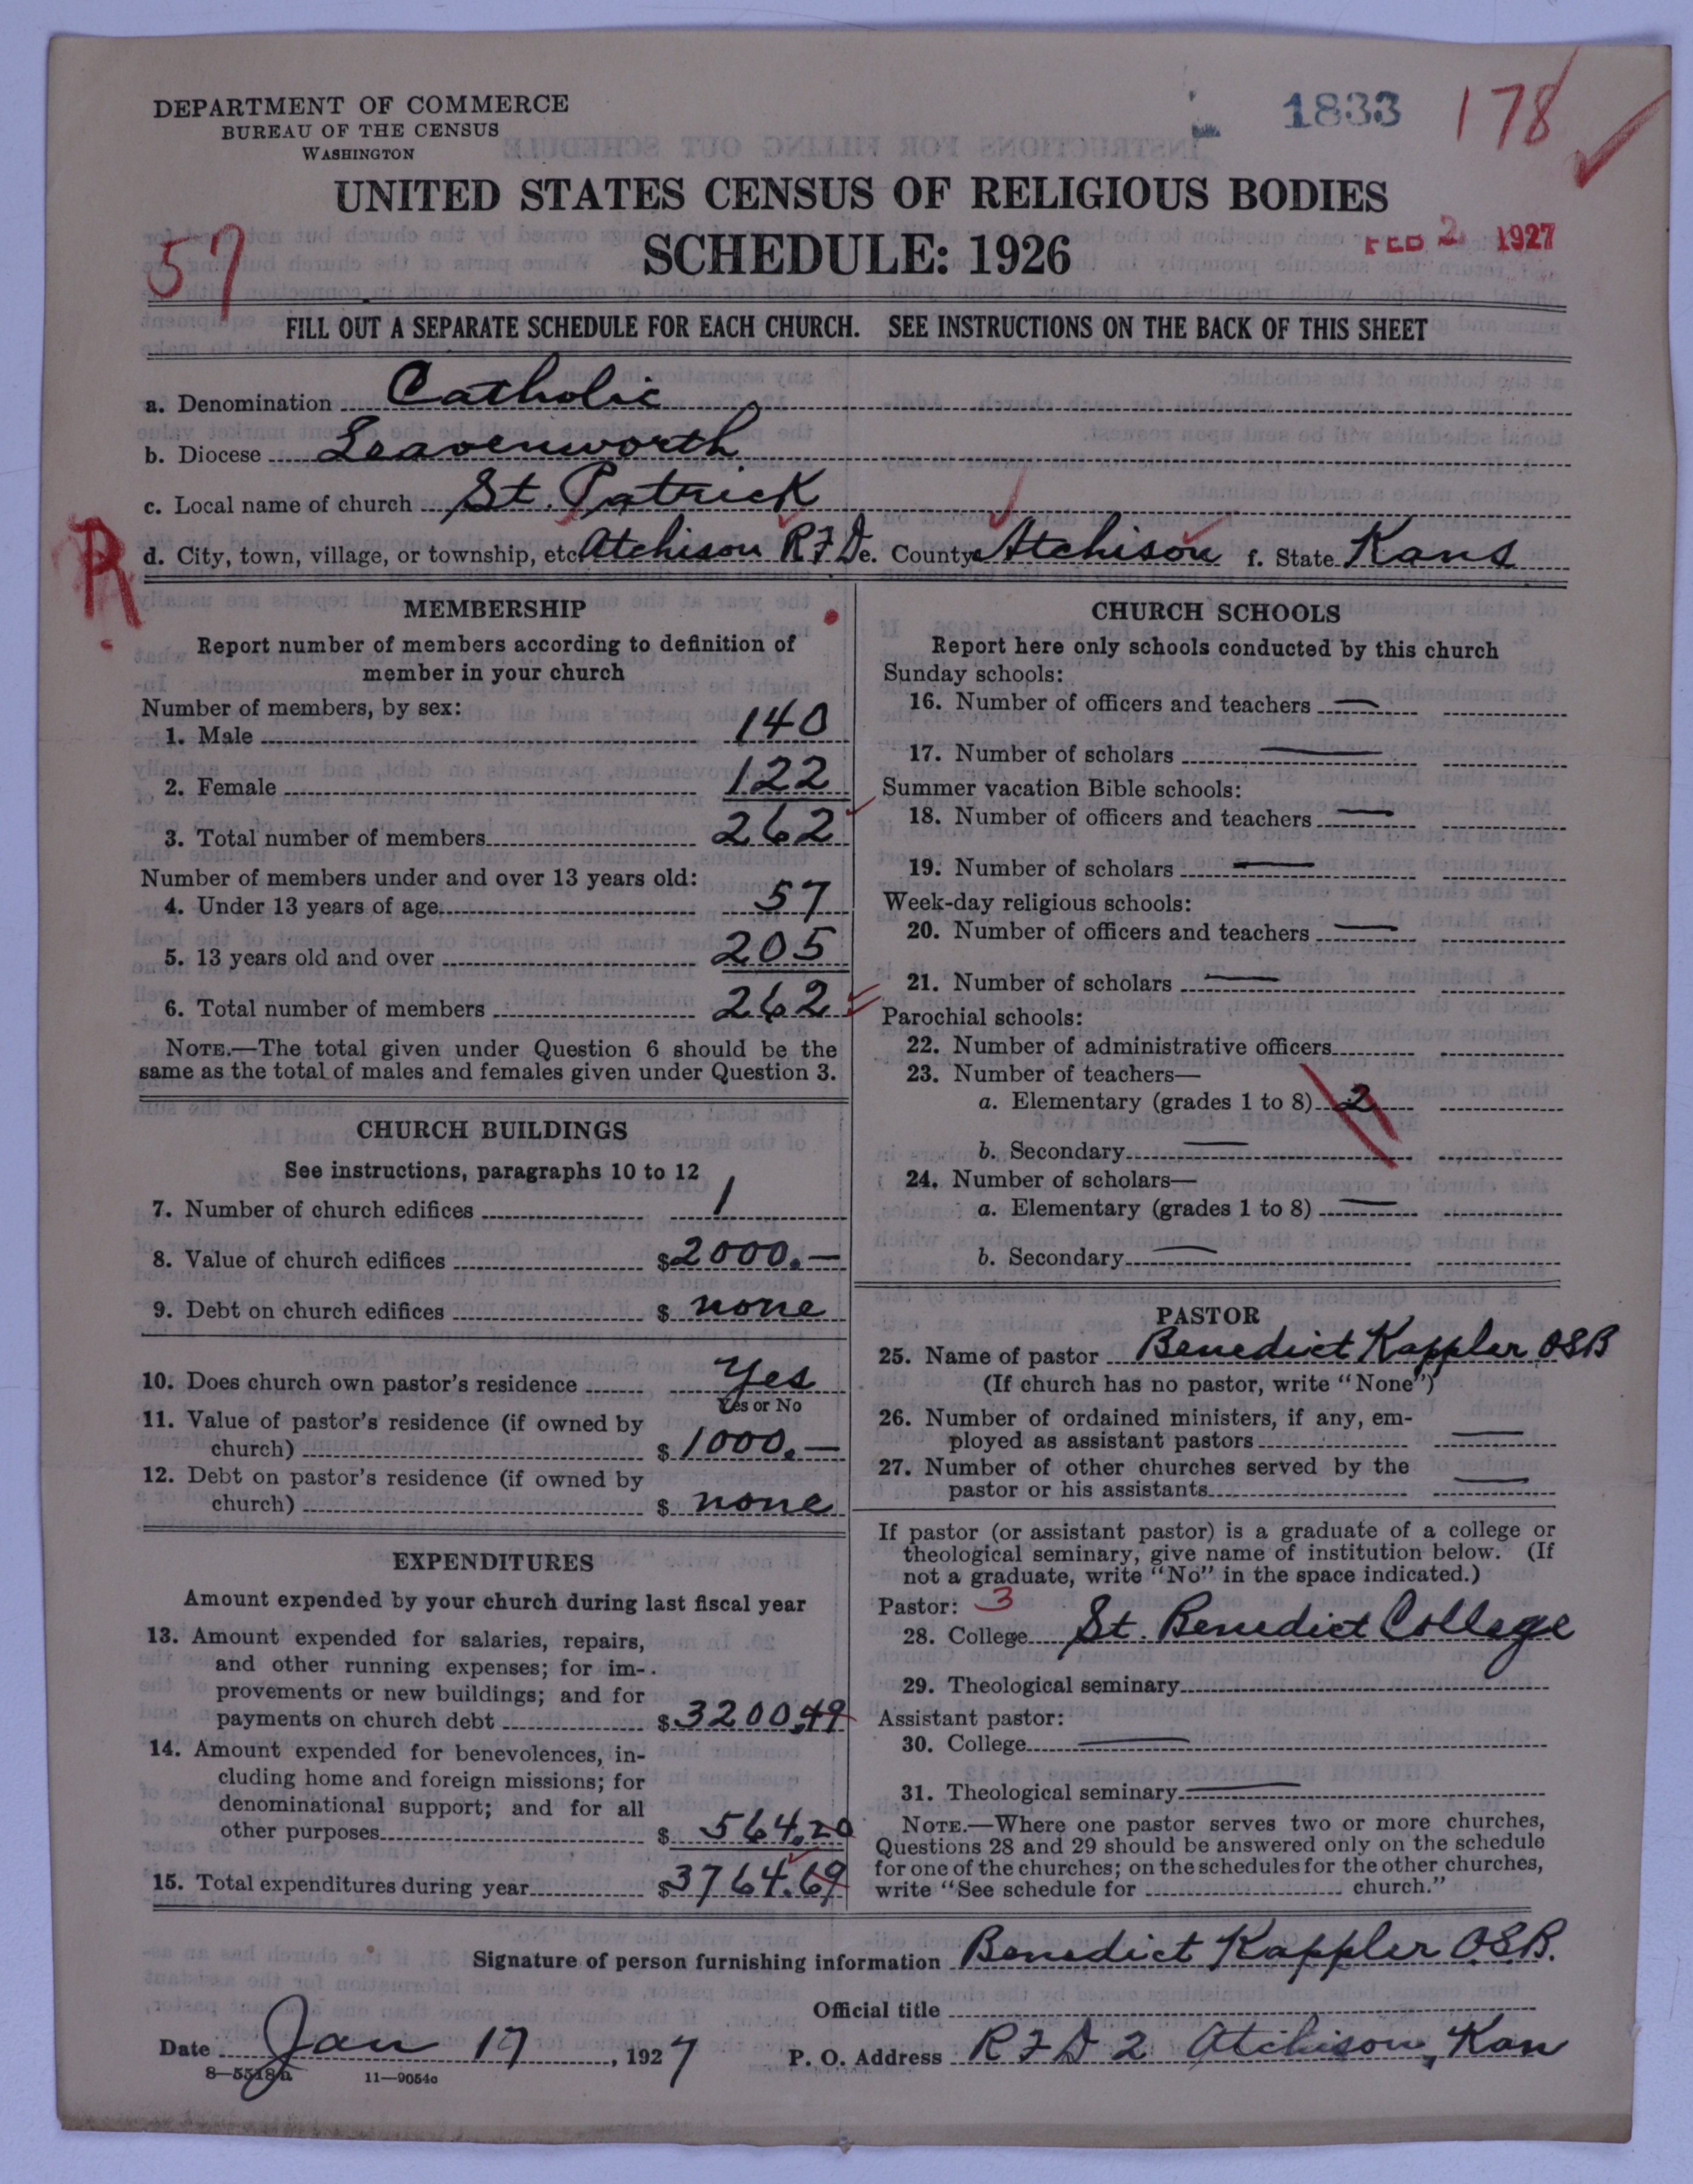 DEPARTMENT OF COMMERCE
BUREAU OF THE CENSUS
WASHINGTON
1833
178
UNITED STATES CENSUS OF RELIGIOUS BODIES
SCHEDULE: 1926
57
FEB 2 1927
FILL OUT A SEPARATE SCHEDULE FOR EACH CHURCH. SEE INSTRUCTIONS ON THE BACK OF THIS SHEET
a. Denomination Catholic
b. Diocese Leavenworth
c. Local name of church St. Patrick
R
d. City, town, village, or township, etc. Atchison RFD e. County Atchison f. State Kans
MEMBERSHIP
Report number of members according to definition of
member in your church
Number of members, by sex:
1. Male 140
2. Female 122
3. Total number of members 262
Number of members under and over 13 years old:
4. Under 13 years of age 57
5. 13 years old and over 205
6. Total number of members 262
NOTE.—The total given under Question 6 should be the
same as the total of males and females given under Question 3.
CHURCH BUILDINGS
See instructions, paragraphs 10 to 12
7. Number of church edifices 1
8. Value of church edifices $2000.—
9. Debt on church edifices $ none
10. Does church own pastor's residence Yes
Yes or No
11. Value of pastor's residence (if owned by
church) $1000.—
12. Debt on pastor's residence (if owned by
church) $ none
EXPENDITURES
Amount expended by your church during last fiscal year
13. Amount expended for salaries, repairs,
and other running expenses; for im-
provements or new buildings; and for
payments on church debt $3200.49
14. Amount expended for benevolences, in-
cluding home and foreign missions; for
denominational support; and for all
other purposes $ 564.20
15. Total expenditures during year $3764.69
CHURCH SCHOOLS
Report here only schools conducted by this church
Sunday schools:
16. Number of officers and teachers —
17. Number of scholars —
Summer vacation Bible schools:
18. Number of officers and teachers —
19. Number of scholars —
Week-day religious schools:
20. Number of officers and teachers —
21. Number of scholars —
Parochial schools:
22. Number of administrative officers
23. Number of teachers—
a. Elementary (grades 1 to 8) 2
b. Secondary —
24. Number of scholars—
a. Elementary (grades 1 to 8) —
b. Secondary —
PASTOR
25. Name of pastor Benedict Kappler OSB
(If church has no pastor, write "None")
26. Number of ordained ministers, if any, em-
ployed as assistant pastors —
27. Number of other churches served by the
pastor or his assistants —
If pastor (or assistant pastor) is a graduate of a college or
theological seminary, give name of institution below. (If
not a graduate, write "No" in the space indicated.)
Pastor: 3
28. College St. Benedict College
29. Theological seminary
Assistant pastor:
30. College —
31. Theological seminary —
NOTE.—Where one pastor serves two or more churches,
Questions 28 and 29 should be answered only on the schedule
for one of the churches; on the schedules for the other churches,
write "See schedule for church."
Signature of person furnishing information Benedict Kappler O.S.B.
Official title
Date Jan 17, 1927 P. O. Address RFD 2 Atchison, Kan
8—5518a 11—9054c